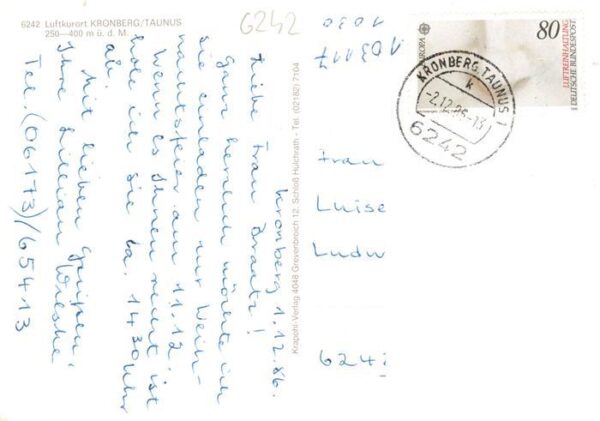 6242 Luftkurort KRONBERG/TAUNUS
250—400 m ü. d. M.
6242
1030
103117
EUROPA
80
LUFTREINHALTUNG
DEUTSCHE BUNDESPOST
KRONBERG, TAUNUS 1
k
-2.12.86-13
6242
Kronberg 1.12.86.
Liebe Frau Braatz!
Ganz herzlich möchte ich
Sie einladen zur Weih-
nachtsfeier am 11.12.
Wenn es Ihnen recht ist
hole ich Sie ca. 14 30 Uhr
ab.
Mit lieben Grüßen
Ihre Lillian
Tel. (06173)/65413
Krapohl-Verlag 4048 Grevenbroich 12, Schloß Hülchrath - Tel. (02182) 7104
Frau
Luise
Ludw
624